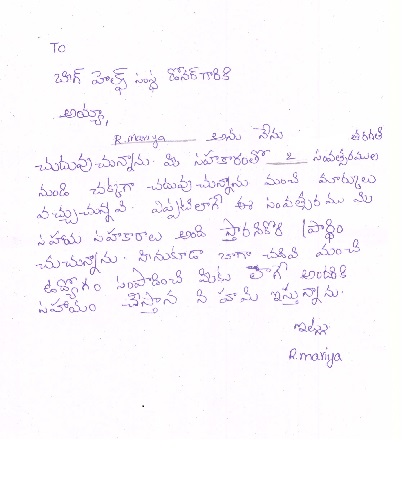 To
బిగ్ హెల్ప్ సంస్థ డోనర్ గారికి
అయ్యా,
R.mariya అను నేను తరగతి
చదువుచున్నాను. మీ సహకారంతో 2 సంవత్సరముల
నుండి చక్కగా చదువుచున్నాను మంచి మార్కులు
వచ్చుచున్నవి. ఎప్పటిలాగే ఈ సంవత్సరము మీ
సహాయ సహకారాలు అంది స్తారనికోరి ప్రార్థిం
చుచున్నాను. నేనుకూడా బాగా చదివి మంచి
ఉద్యోగం సంపాదించి మీకు లాగే అందరికి
సహాయం చేస్తాన ని హామి ఇస్తున్నాను.
ఇట్లు
R.mariya